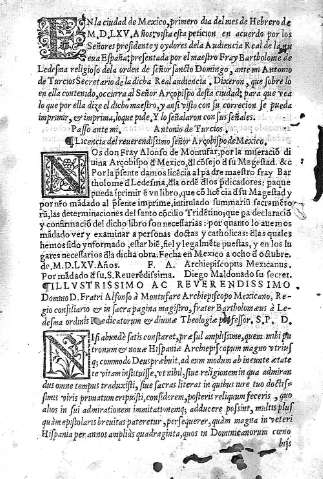 EN la ciudad de Mexico, primero dia del mes de Hebrero de
M.D,LXV, Años, vista esta peticion en acuerdo por los
Señores presidente y oydores dela Audiencia Real de la nu
eua España, presentada por el maestro Fray Bartholome de
Ledesma religioso dela orden de señor sancto Domingo, ante mi Antonio
de Turcios Secretario de la dicha Real Audiencia, Dixeron, que sobre lo
en ella contenido, occurra al Señor Arçobispo desta ciudad; para que vea
lo que por ella dize el dicho maestro, y assi visto con su correcion se pueda
imprimir, & imprima, lo que pide, Y lo señalaron con sus señales.
Passo ante mi, Antonio de Turcios.
¶ Licencia del reuerendissimo señor Arçobispo de Mexico,
NOs don Fray Alonso de Montufar, por la miseraciõ di
uina Arçobispo d̃ Mexico, d̃l cõsejo d̃ su Magestad. & c̃
Por la p̃sente damos licẽcia al padre maestro fray Bar
tholome d̃ Ledesma, d̃la ordẽ d̃los p̃dicadores; para que
pueda imprimir este libro, que cõ licẽcia d̃ su Magestad y
por nr̃o mãdado al p̃sente imprime, intitulado summario sacramẽto
rũ, las determinaciones del santo cõcilio Tridẽtino, que pa declaraciõ
y confirmaciõ del dicho libro son necessarias: por quanto lo auemos
mãdado ver y examinar a personas doctas y catholicas: d̃las quales
hemos sido ynformado, estar biẽ, fiel y legalmẽte puestas, y en los lu
gares necessarios d̃la dicha obra. Fecha en Mexico a ocho d̃ octubre
de M.D.LXV. Años. F. A. Archiepiscopus Mexicanus.
Por mãdado d̃ su, S. Reuerẽdissima. Diego Maldonado su secret.
¶ ILLVSTRISSIMO AC REVERENDISSIMO
Domino D. Fratri Alfonso à Montufare Archiepiscopo Mexicano, Re-
gio consiliario & in sacra pagina magistro, frater Bartholomæus à Le-
desma ordinis Prædicatorum & diuinæ Theologiæ professor, S. P. D.
NIsi abundè satis constaret, præsul amplissime, quem mihi pa
tronum & nouæ Hispaniæ Archiepiscopum magno vtriusq;
commodo Deus præbuit, ad eum modum ab ineunte ætate
vitam instituisse, vt nihil, siue religionem in qua admiran
dus omne tempus traduxisti, siue sacras literas in quibus iure tuo doctis-
simis viris primatum eripuisti, consyderem, posteris reliquum feceris, quo
alios in sui admirationem immitationemq; adducere possint, multis plus
quàm epistolaris breuitas pateretur, persequerer, quàm magna in veteri
Hispania per annos amplius quadraginta, quos in Dominicanorum cœno
bijs